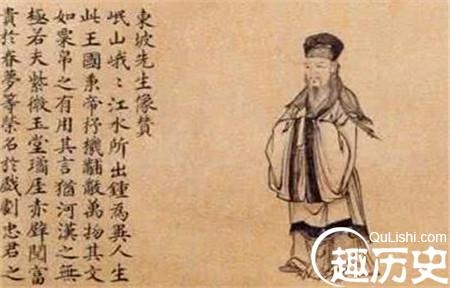 東坡先生像贊
岷山峩〻江水所出鍾為異人生
此王國秉帝杼機黼黻萬物其文
如粟帛之有用其言猶河漢之無
極若夫紫微玉堂瓊厓赤壁閱富
貴於春夢等榮名於戲劇忠君之
QuLishi.com
趣历史